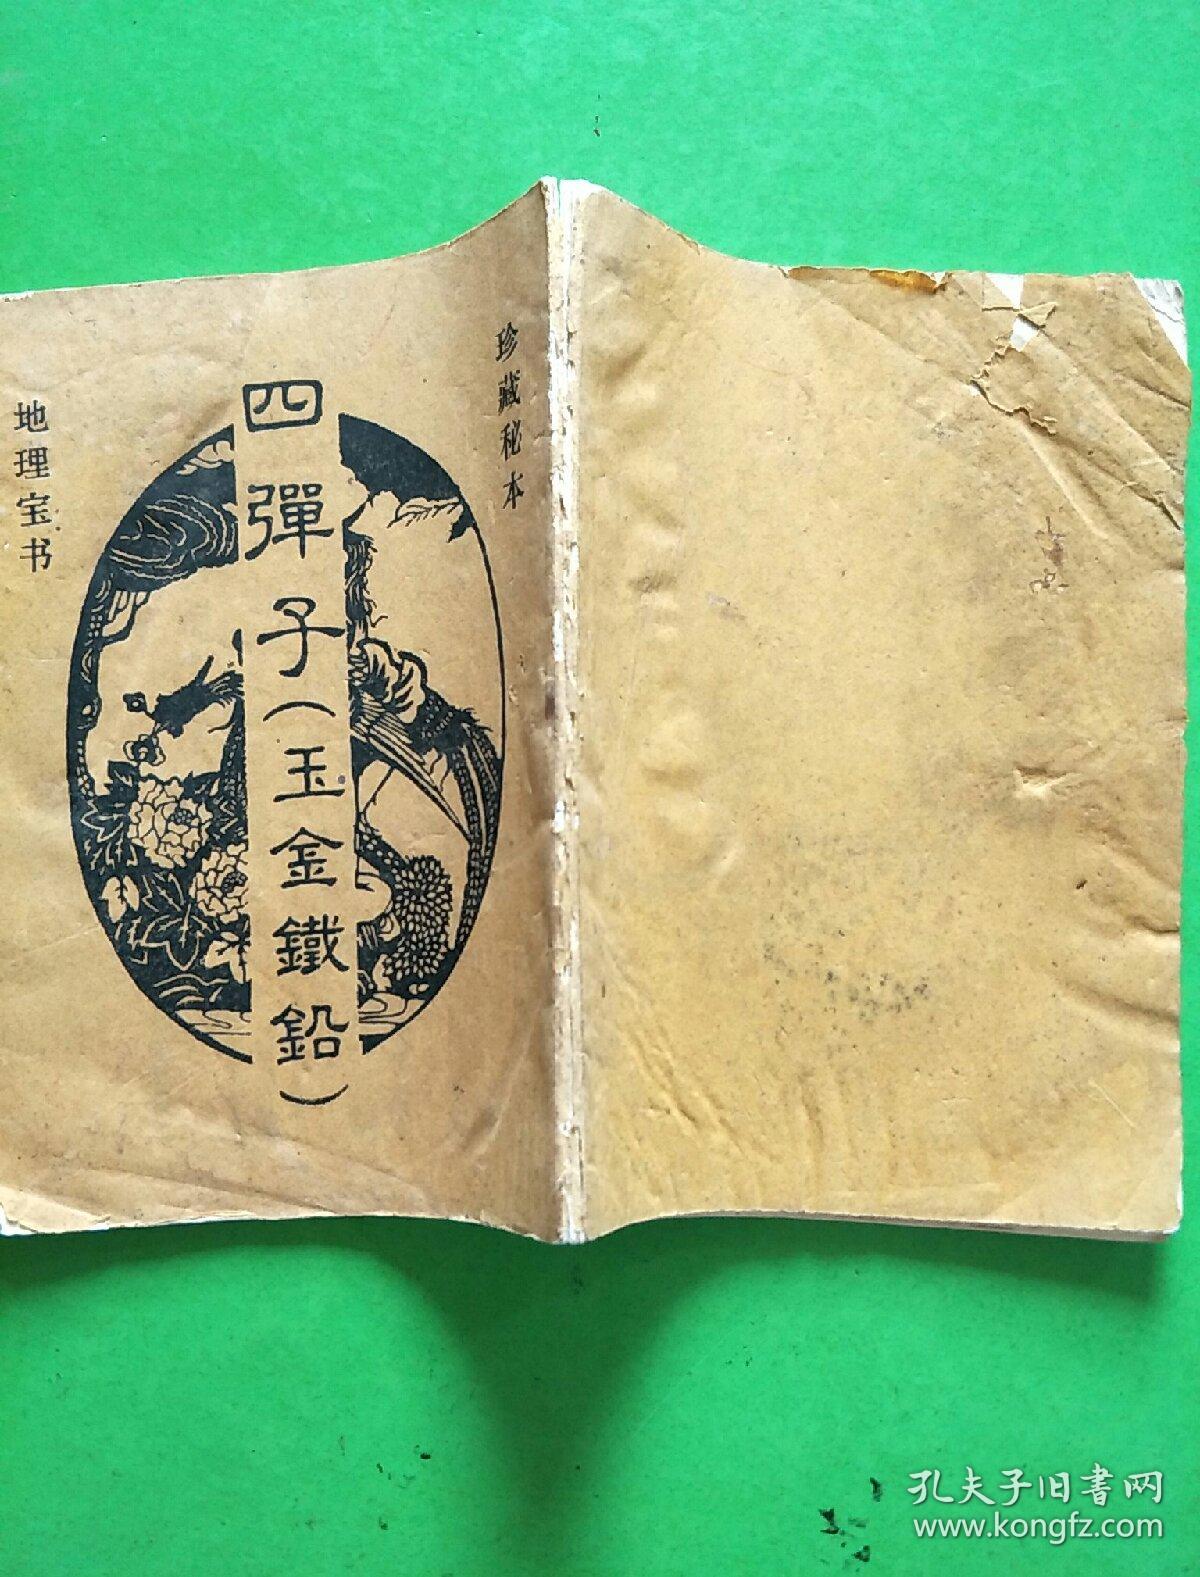 珍藏秘本
四彈子（玉金鐵鉛）
地理宝书
孔夫子旧書网
www.kongfz.com